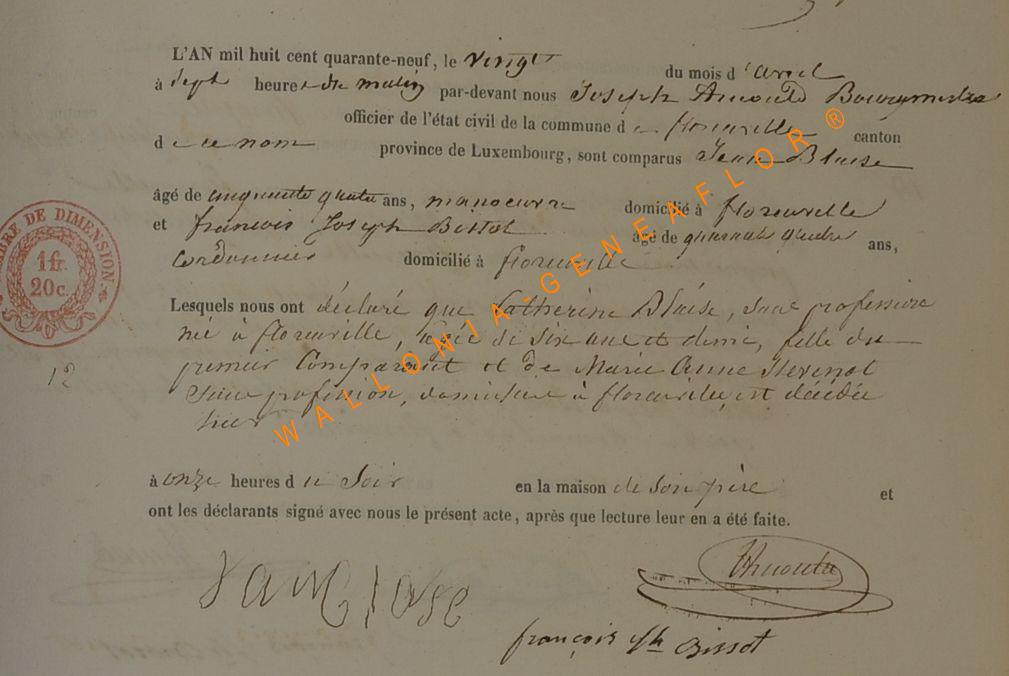 L'AN mil huit cent quarante-neuf, le vingt du mois d'avril
à sept heures du matin par-devant nous Joseph Arnould Bourgmestre
officier de l'état civil de la commune de florenville canton
de ce nom province de Luxembourg, sont comparus Jean Blaise
âgé de cinquante quatre ans, manoeuvre domicilié à florenville
et francois Joseph Bissot âgé de quarante quatre ans,
Cordonnier domicilié à florenville
Lesquels nous ont déclaré que Catherine Blaise, sans profession
née à florenville, agée de six ans et demi, fille du
premier Comparant et de Marie Anne
sans profession, domiciliée à florenville, est décédée
hier
à onze heures du Soir en la maison de son père et
ont les déclarants signé avec nous le présent acte, après que lecture leur en a été faite.
TIMBRE DE DIMENSION.
1 fr.
20 c.
12
WALLONIA-GENEAFLOR®
Arnould
françois jh Bissot